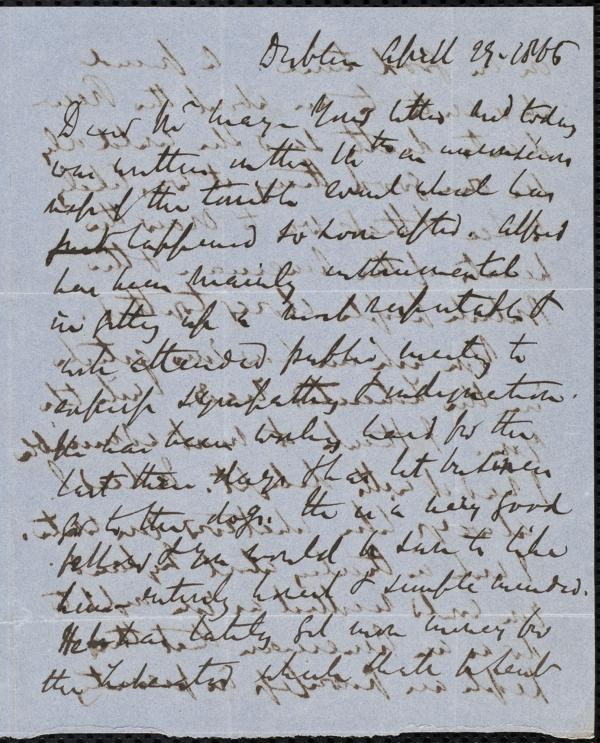 Dublin April 29 - 1865
Dear Mr May - Your letter recd today
was written on the 11th in unconscious
of the terrible event which has
happened so soon after. Alfred
has been mainly instrumental
in getting up a most respectable &
well attended public meeting to
express sympathy & indignation.
He has been working hard for the
last three days & has let business
go to the dogs. He is a very good
fellow & you would be sure to like
him - entirely honest & simple minded.
He has lately got more money for
the Liberated which shall be sent